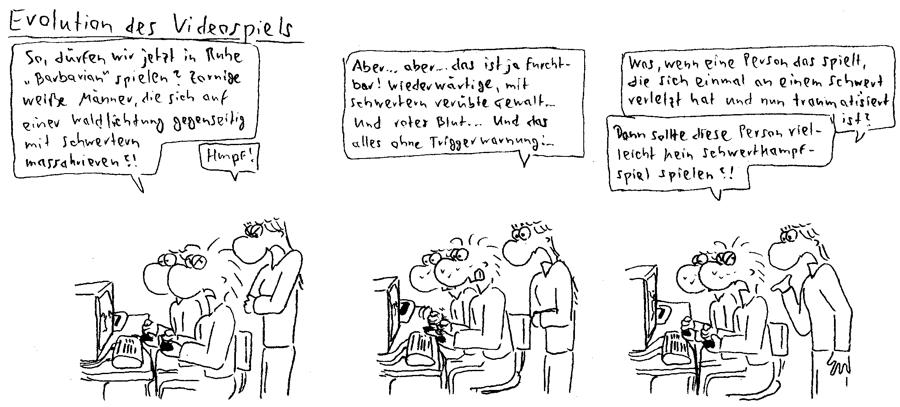 Evolution des Videospiels
So, dürfen wir jetzt in Ruhe
„Barbarian“ spielen? Zornige
weiße Männer, die sich auf
einer Waldlichtung gegenseitig
mit Schwertern
massakrieren?!
Hmpf!
Aber... aber... das ist ja furcht-
bar! Wiederwärtige, mit
Schwertern verübte Gewalt...
Und rotes Blut... Und das
alles ohne Triggerwarnung!...
Was, wenn eine Person das spielt,
die sich einmal an einem Schwert
verletzt hat und nun traumatisiert
ist?
Dann sollte diese Person viel-
leicht kein Schwertkampf-
spiel spielen?!